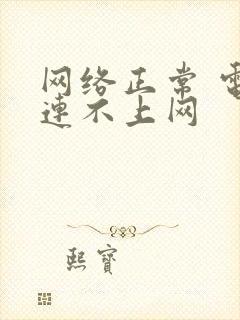 网络正常 電
連不上网
熙寶